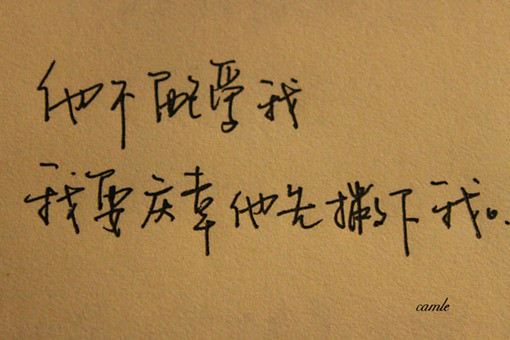 他不我
我要庆幸他先撇下我。
camle